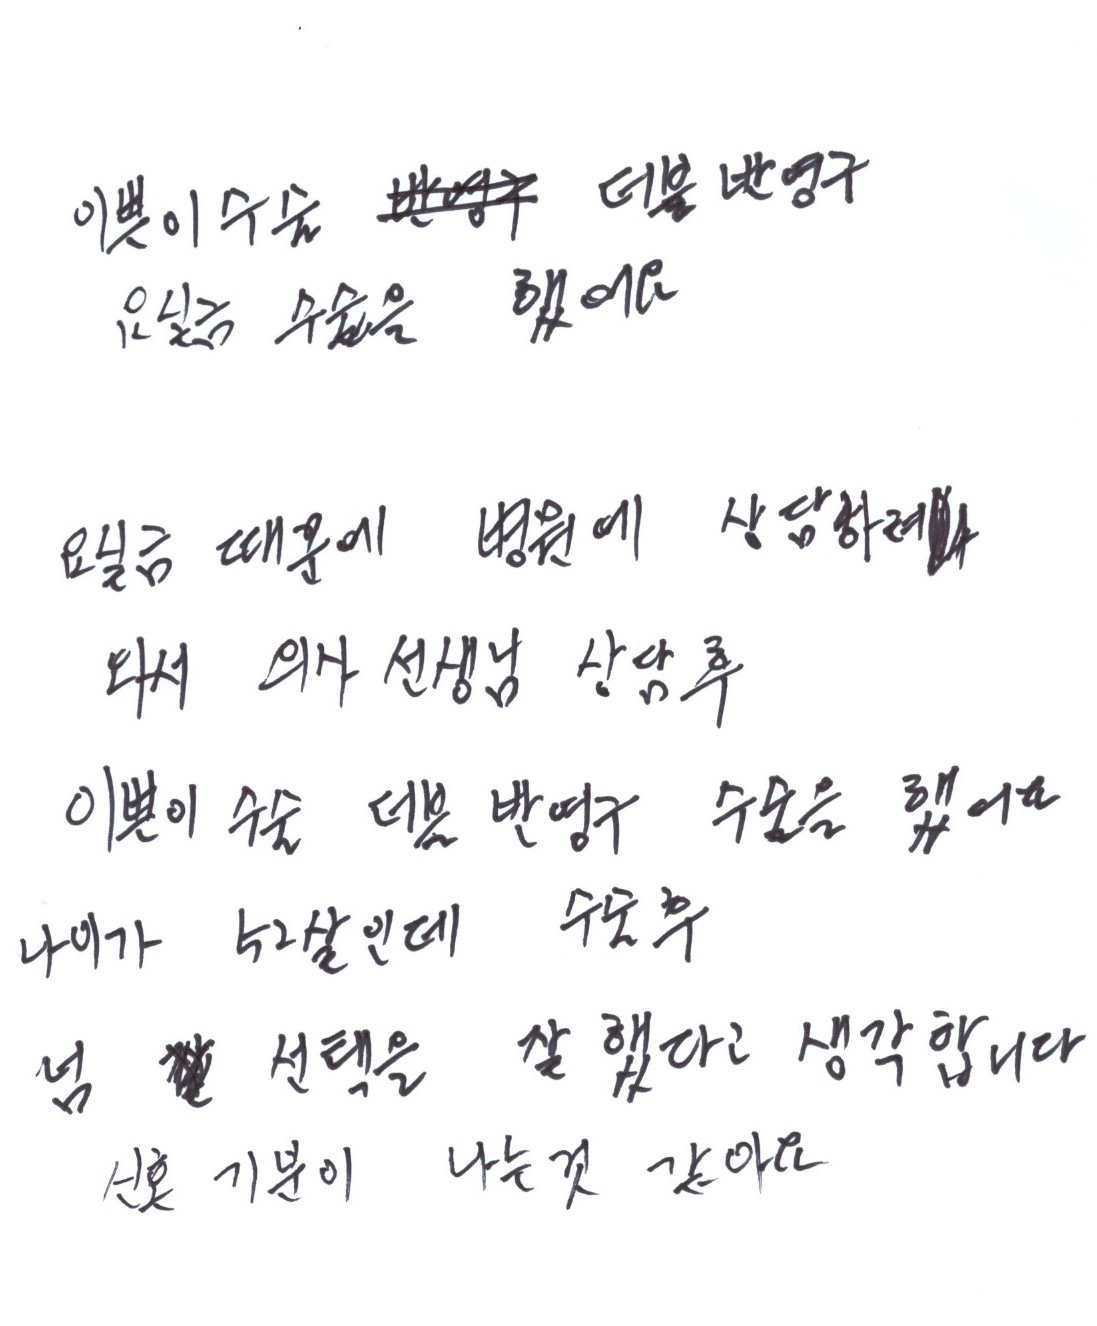 이쁜이수술 더블 반영구
요실금 수술을 했어요
요실금 때문에 병원에 상담하려
와서 의사 선생님 상담후
이쁜이 수술 더블 반영구 수술을 했어요
나이가 52살인데 수술후
넘 선택을 잘 했다고 생각합니다
신혼 기분이 나는것 같아요